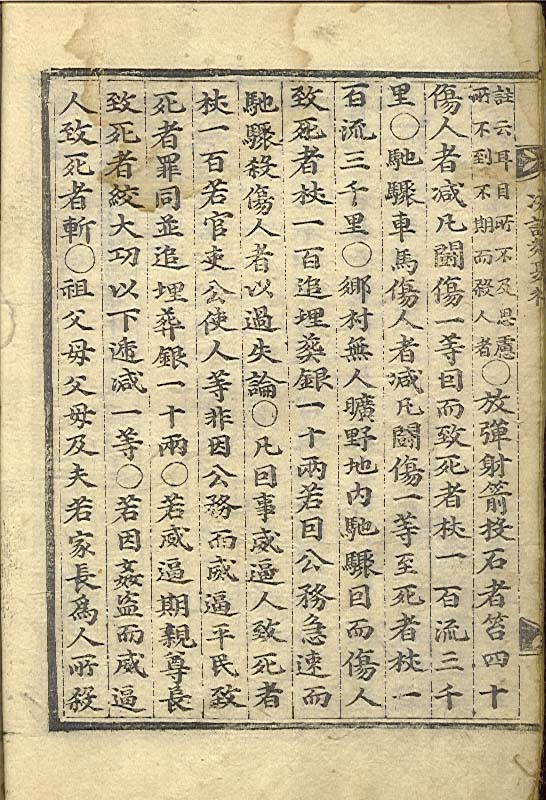 註云耳目所不及思慮
所不到不期而殺人者
○放彈射箭投石者笞四十
傷人者减凡闘傷一等因而致死者杖一百流三千
里○馳驟車馬傷人者减凡闘傷一等至死者杖一
百流三千里○鄉村無人曠野地內馳驟因而傷人
致死者杖一百追埋葬銀一十兩若因公務急速而
馳驟殺傷人者以過失論○凡因事威逼人致死者
杖一百若官吏公使人等非因公務而威逼平民致
死者罪同並追埋葬銀一十兩○若威逼期親尊長
致死者絞大功以下遞减一等○若因姦盗而威逼
人致死者斬○祖父母父母及夫若家長爲人所殺